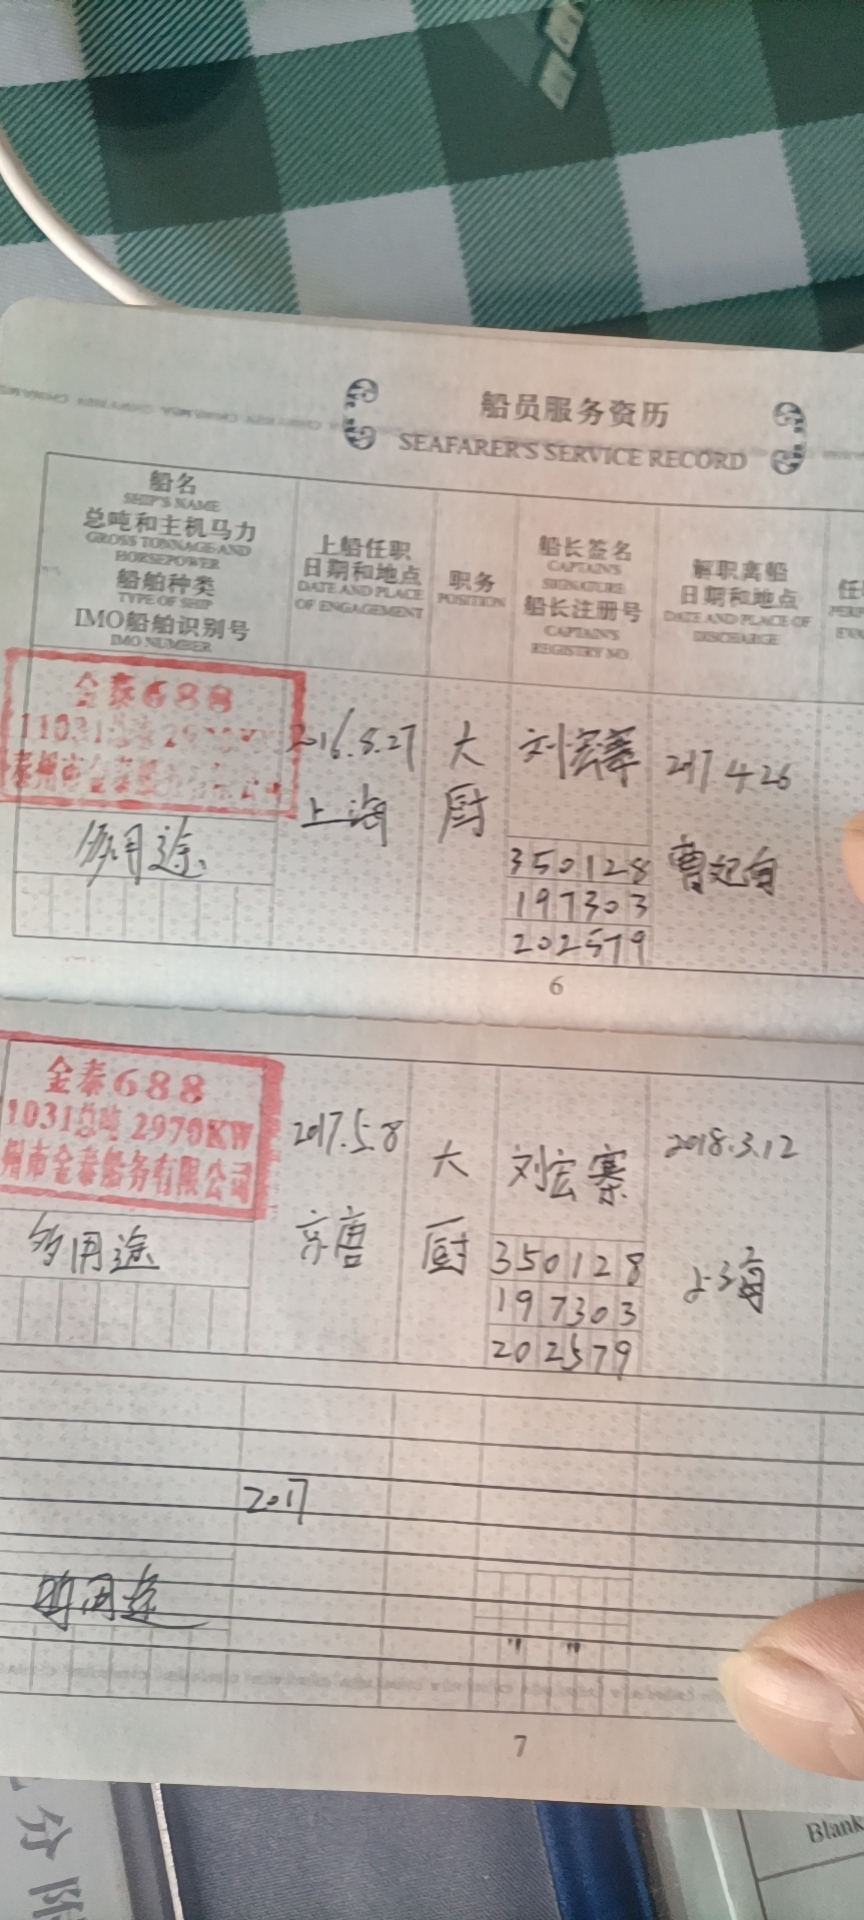 船员服务资历
SEAFARER'S SERVICE RECORD
船名
SHIP'S NAME
总吨和主机马力
GROSS TONNAGE AND
HORSEPOWER
船舶种类
TYPE OF SHIP
IMO船舶识别号
IMO NUMBER
上船任职
日期和地点
DATE AND PLACE
OF ENGAGEMENT
职务
POSITION
船长签名
CAPTAIN'S
SIGNATURE
船长注册号
CAPTAIN'S
REGISTRY NO.
解职离船
日期和地点
DATE AND PLACE OF
DISCHARGE
金泰688
11031总吨
泰州市金泰船务有限公司
多用途
2016.8.27
上海
大
厨
350128
197303
202579
2017.4.26
曹妃甸
6
金泰688
1031总吨 2970KW
州市金泰船务有限公司
多用途
2017.5.8
京唐
大
厨
刘宏寨
350128
197303
202579
2018.3.12
上海
2017
7
分
Blank